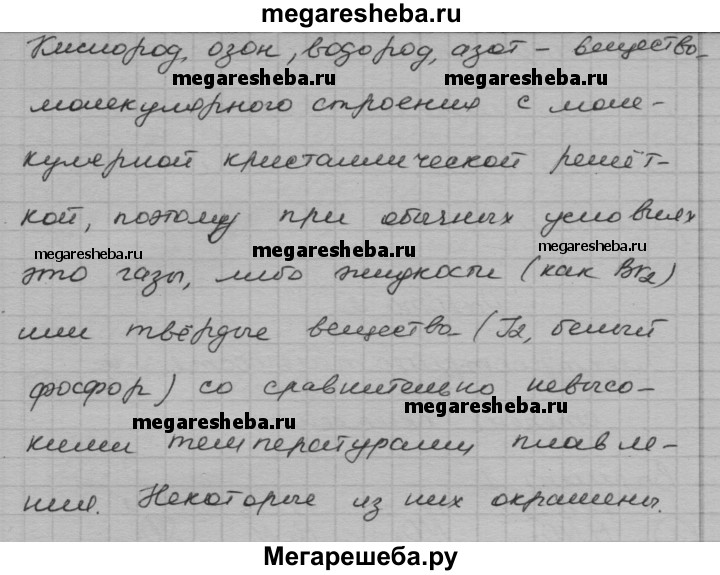 megaresheba.ru
Кислород, озон, водород, азот - вещества
megaresheba.ru megaresheba.ru
молекулярного строения с моле-
кулярной кристаллической решёт-
кой, поэтому при обычных условиях
megaresheba.ru megaresheba.ru megaresheba.ru
это газы, либо жидкости (как Br2)
или твёрдые вещества (I2, белый
фосфор) со сравнительно невысо-
megaresheba.ru megaresheba.ru
кими температурами плавле-
ния. Некоторые из них окрашены.
Мегарешеба.ру